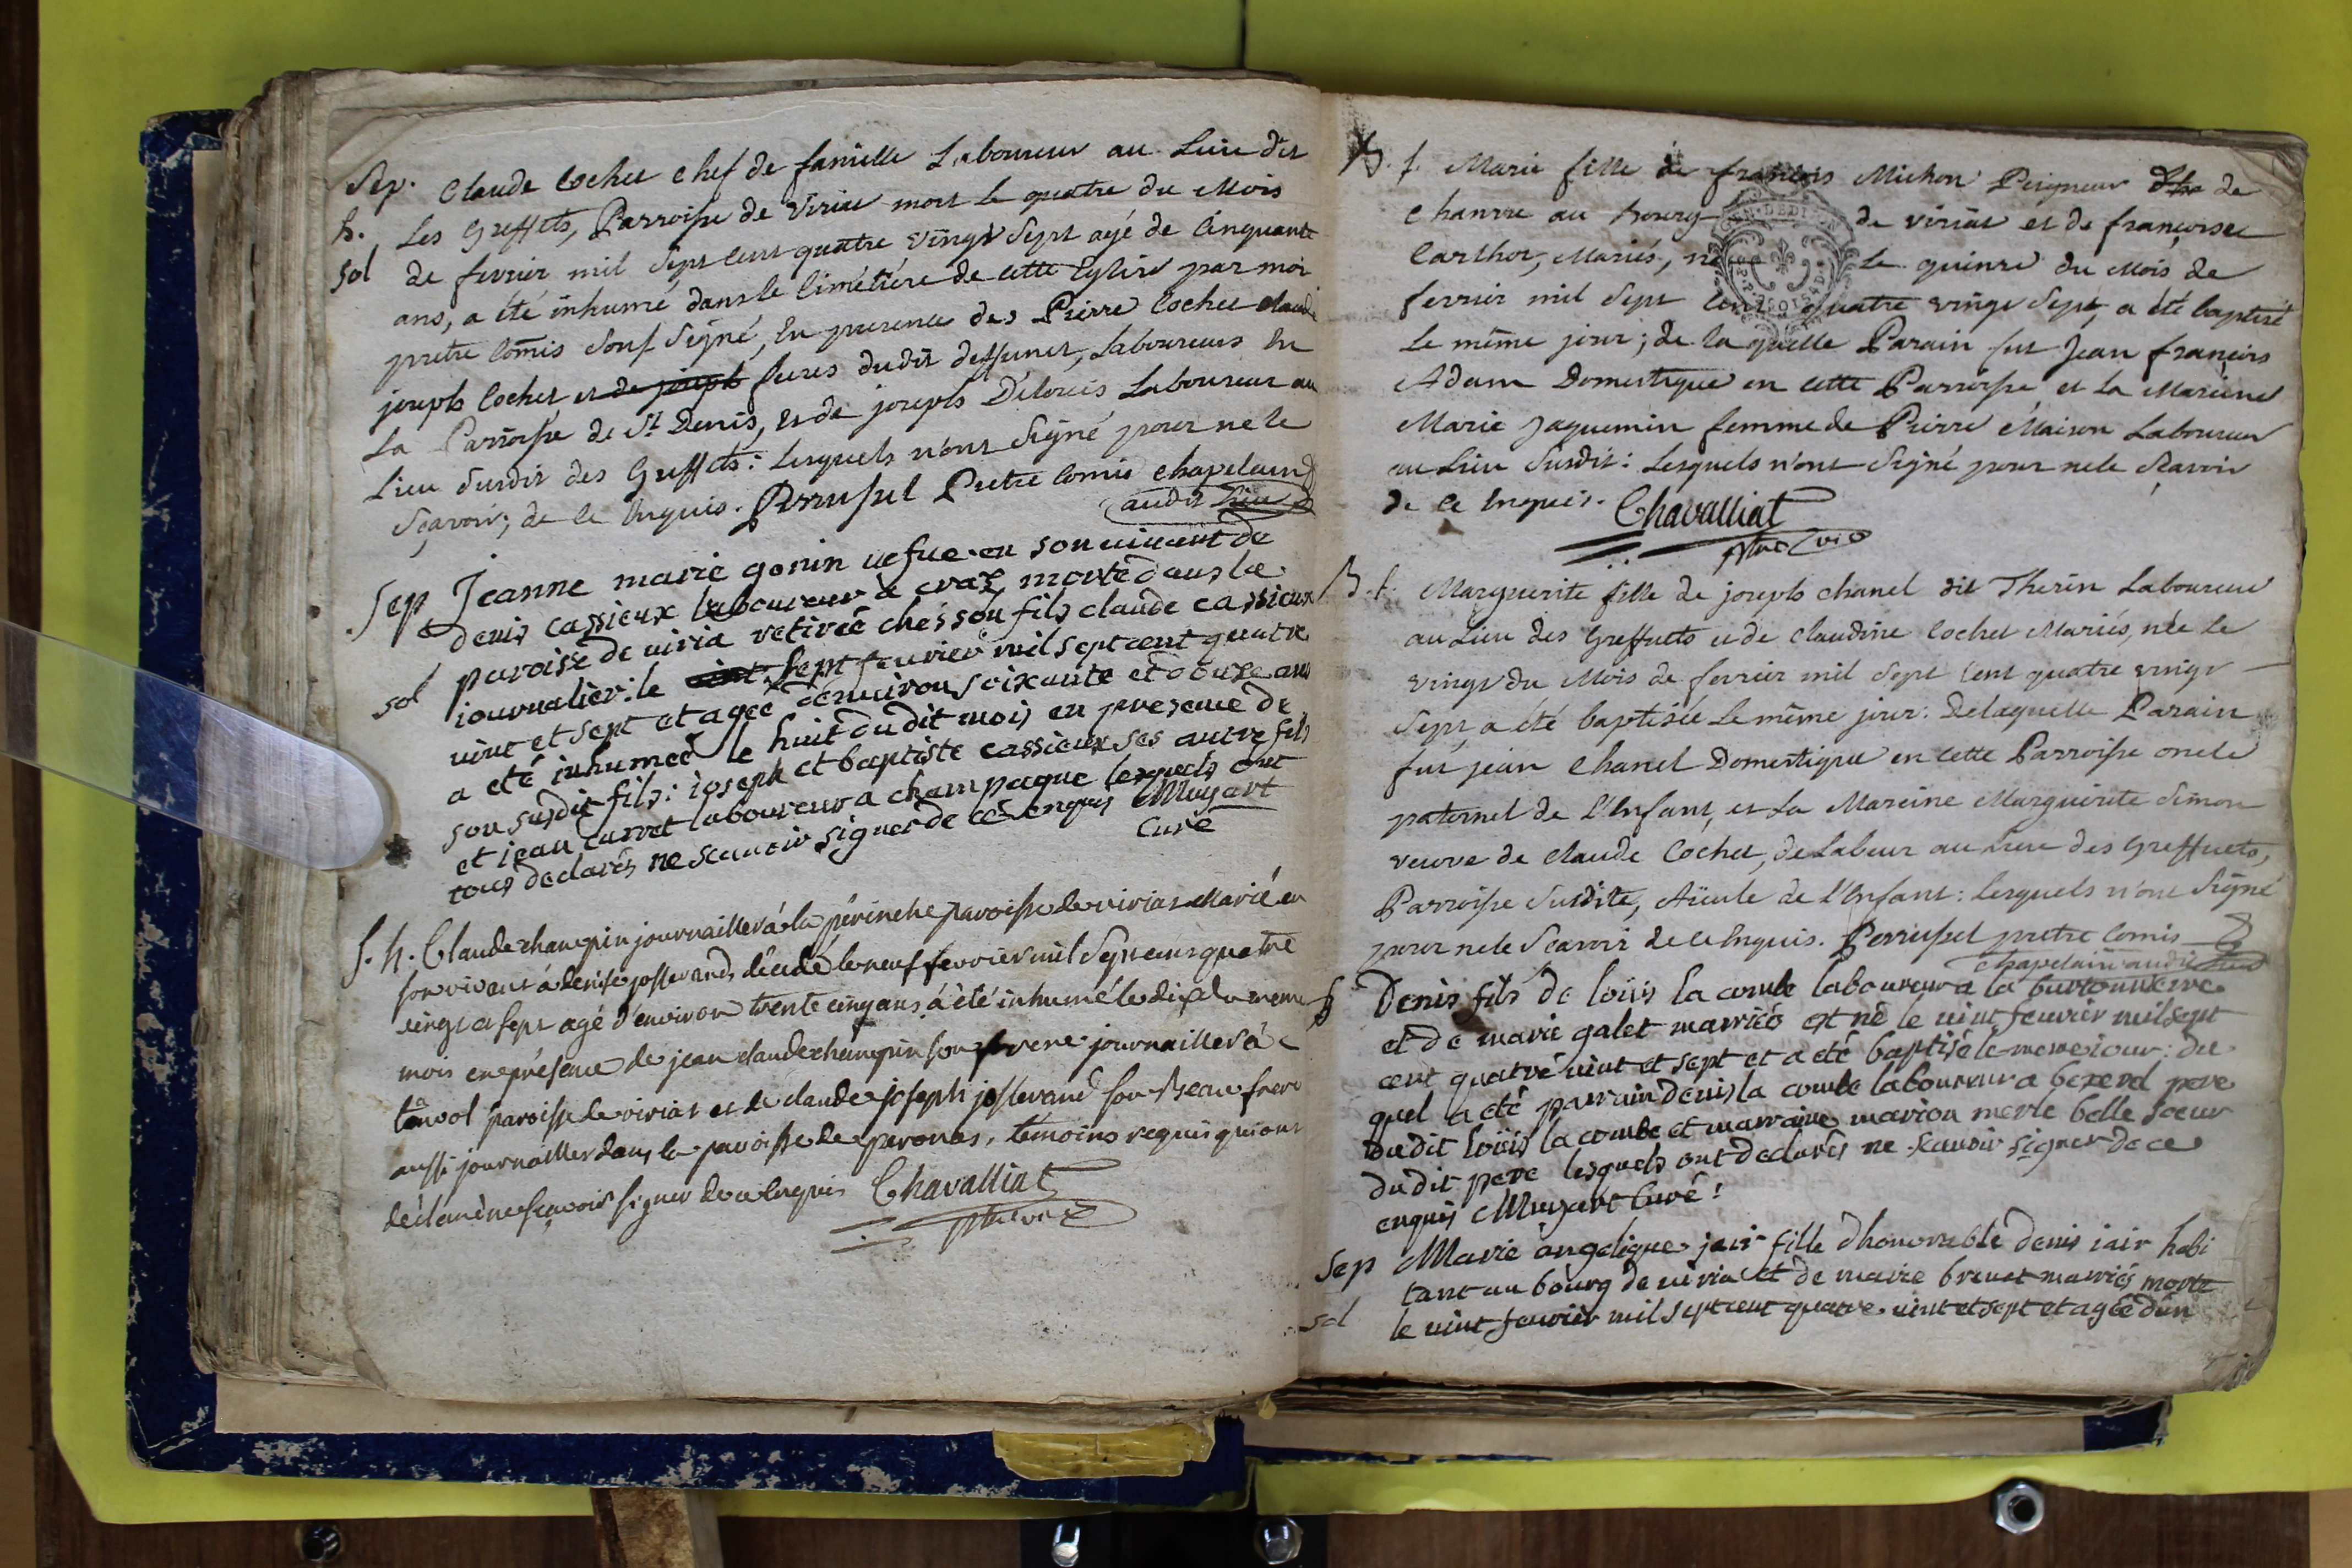 Sep. Claude Cochet chef de famille Laboureur au Lieu dit
h. Les Greffets, Parroisse de Viriat mort le quatre du Mois
sol de fevrier mil sept cent quatre vingt sept agé de Cinquante
ans, a été inhumé dans le Cimétiére de cette Eglise par moi
pretre Comis Souf Signé, En presence des Pierre Cochet claude
joseph Cochet et de joseph freres dudit deffunct, Laboureurs En
La Parroisse de St Denis, et de joseph Délouis Laboureur au
Lieu Susdit des Greffets: Lesquels n'ont Signé pour ne le
Sçavoir; de ce Enquis. Perrusset Pretre Comis chapelain
audit Lieu
Sep Jeanne marie gonin vefue en son uiuant de
denis cassieux laboureur a craz morte dans la
paroisse de uiria retirée chés son fils claude cassieux
sol journalier: le sept feurier mil sept cent quatre
uint et sept et agée d'enuiron soixante et douze ans
a eté inhumeé le huit du dit mois en presence de
son susdit fils: joseph et baptiste cassieux ses autre fils
et jean curvet laboureur a champagne lesquels ont
tous declarés ne scauoir signer de ce enquis Muyart
Curé
S. h. Claude champin journaillier à la périnche paroisse de viriat Marié en
son vivant à denise josserand, décédé le neuf fevrier mil Sept cent quatre
vingt et sept agé d'environ trente cinq ans, à été inhumé le dix du meme
mois en présence de jean claude champin son frere journaillier à
tanvol paroisse de viriat et de claude joseph josserand son Beau frere
aussi journaillier dans la paroisse de peronas, témoins requis qui ont
déclaré ne sçavoir signer de ce Enquis Chavalliat
ptre vic
B. f. Marie fille de françois Michon Peigneur de
Chanvre au bourg de viriat et de françoise
Carthor, Mariés, née Le quinze du Mois de
fevrier mil Sept Cent quatre vingt Sept, a été baptisée
Le même jour; de la quelle Parain fut Jean françois
Adam Domestique en cette Parroisse, et La Mareine
Marie Jaquemin femme de Pierre Maison Laboureur
au Lieu Susdit: Lesquels n'ont Signé pour ne le Sçavoir
de ce Enquis. Chavalliat
ptre vic
B. f. Marguerite fille de joseph chanel dit Therin Laboureur
au Lieu des Greffets et de claudine Cochet Mariés, née Le
vingt du Mois de fevrier mil Sept Cent quatre vingt
Sept, a été baptisée Le même jour: De laquelle Parain
fut jean Chanel Domestique en cette Parroisse oncle
paternel de L'Enfant, et La Mareine Marguerite Simon
veuve de claude Cochet, de Labeur au Lieu des Greffets,
Parroisse Susdite, Aïeule de L'Enfant: Lesquels n'ont Signé
pour ne le Scavoir de ce Enquis. Perrusset pretre Comis
chapelain audit Lieu
b Denis fils de loüis la combe laboureur a la
et de marie galet marriés est né le uint feurier mil sept
cent quatre uint et sept et a eté baptisé le meme iour: du
quel a eté parrain denis la combe laboureur a pere
du dit loüis la combe et marraine marion merle belle soeur
du dit pere lesquels ont declarés ne scauoir signer de ce
enquis Muyart Curé
Sep Marie angelique jair fille d'honorable denis iair habi
tant au bourg de uiria et de marie brevet marriés morte
sol le uint feurier mil sept cent quatre uint et sept et agée d'un